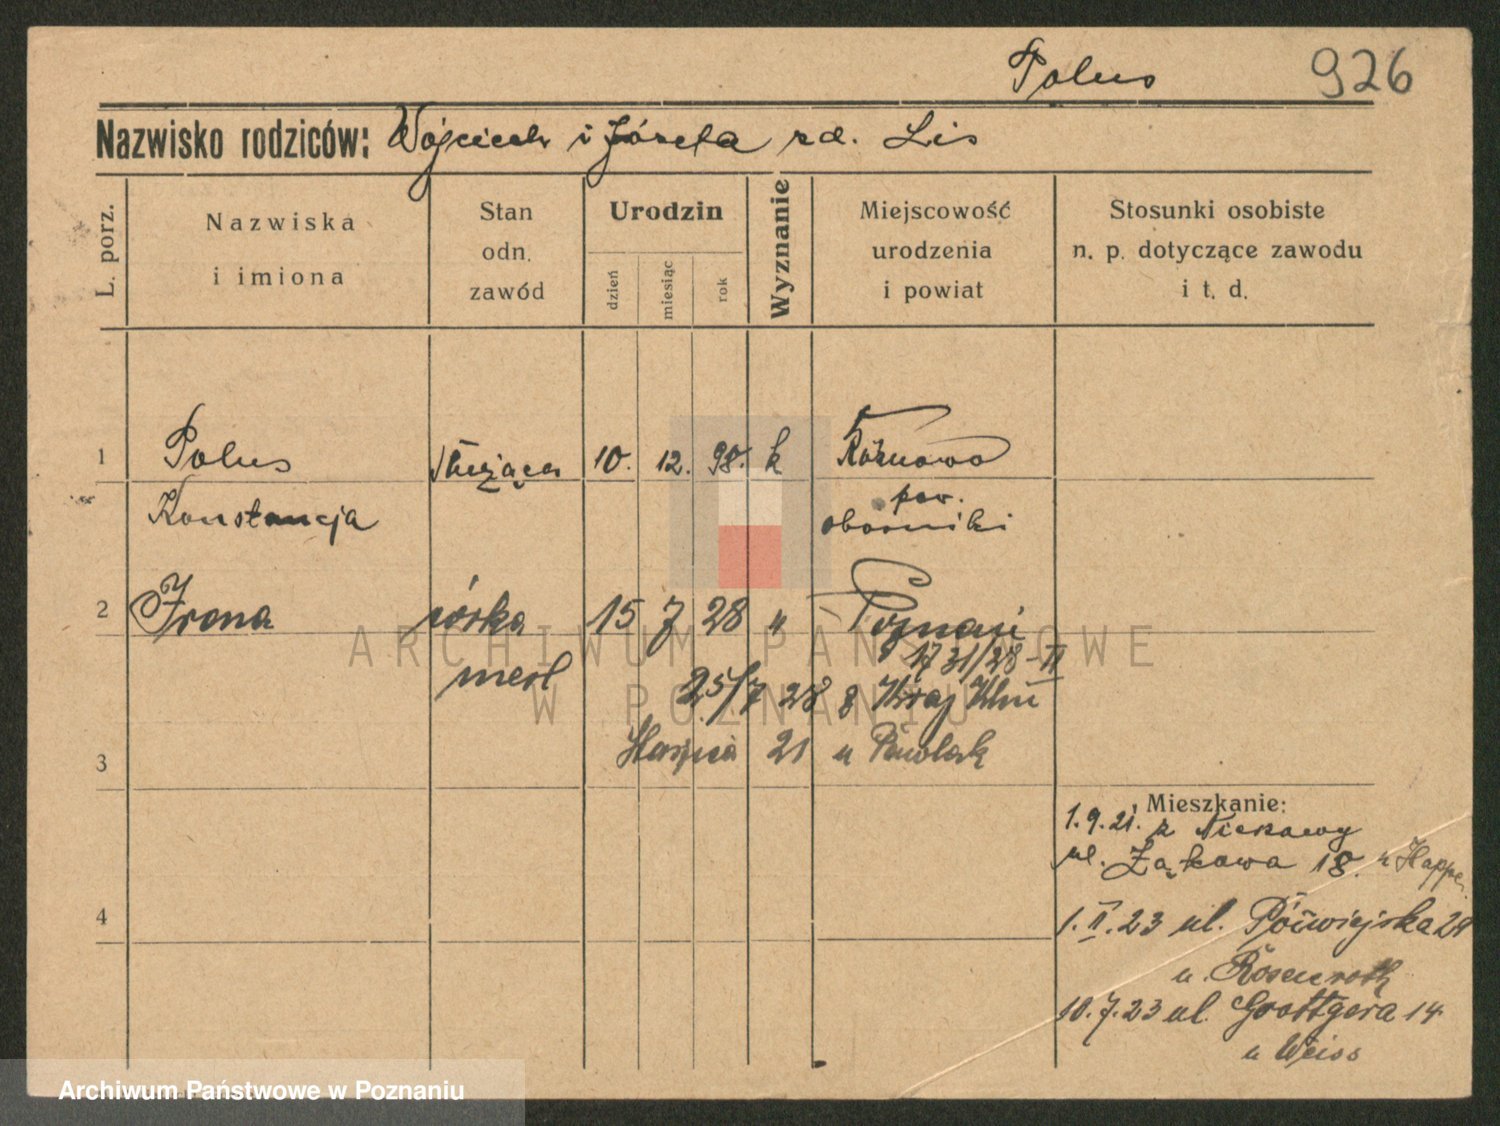 Polus 926
Nazwisko rodziców: Wojciech i Józefa zd. Lis
L. porz.
Nazwiska
i imiona
Stan
odn.
zawód
Urodzin
dzień
miesiąc
rok
Wyznanie
Miejscowość
urodzenia
i powiat
Stosunki osobiste
n. p. dotyczące zawodu
i t. d.
1 Polus służąca 10. 12. 98. k. Rożnowo
Konstancja pow.
oborniki
2 Irena córka 15 7 28 " Poznań
1731/28-II
25/7 28
21 u Pawlak
3
Mieszkanie:
1.9.21. z
ul. Łąkowa 18. u
4
1.II.23 ul. Półwiejska 29
u. Rosenroth
10.7.23 ul. Grottgera 14
u Weiss
ARCHIWUM PAŃSTWOWE
W POZNANIU
Archiwum Państwowe w Poznaniu